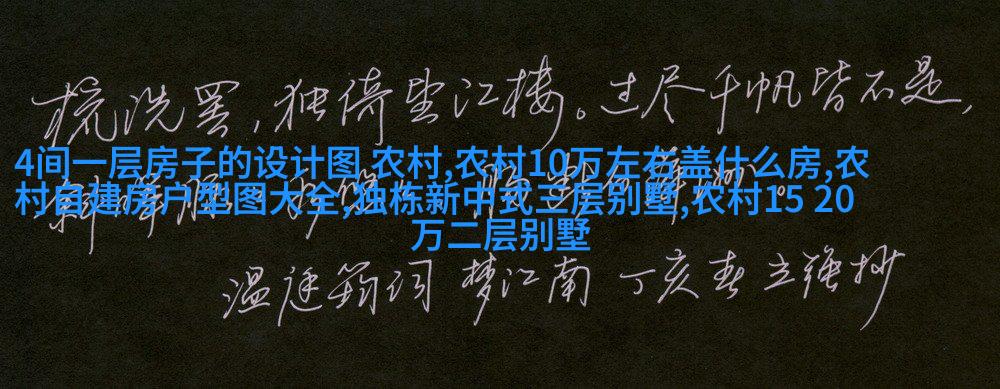 梳洗罢，独倚望江楼。过尽千帆皆不是，
4间一层房子的设计图,农村,农村10万左右盖什么房,农
村自建房户型图大全,独栋新中式三层别墅,农村15 20
万二层别墅
温庭筠词 梦江南 丁亥春 立强抄